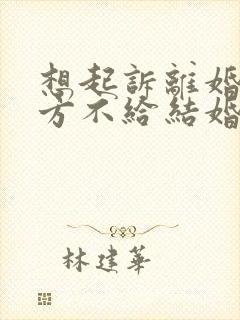 想起訴離婚
方不給結婚
林建華